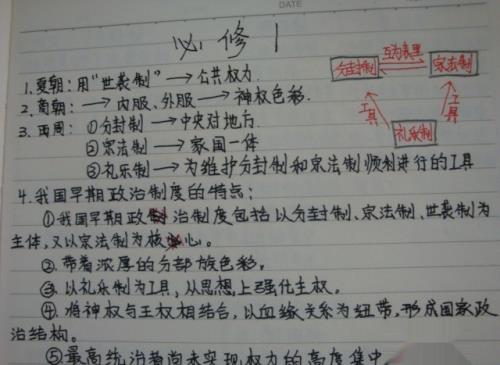 DATE
必修1
1.夏朝：用"世袭制"→公共权力.
2.商朝：→内服、外服→神权色彩.
3.西周：①分封制→中央对地方.
②宗法制→家国一体
③礼乐制→为维护分封制和宗法制顺利进行的工具
分封制 互为表里 宗法制
工具 工具
礼乐制
4.我国早期政治制度的特点：
①我国早期政治制度包括以分封制、宗法制、世袭制为
主体，又以宗法制为核心。
②带着浓厚的分部族色彩。
③以礼乐制为工具，从思想上强化主权。
④将神权与王权相结合，以血缘关系为纽带，形成国家政
治结构。
⑤最高统治者尚未实现权力的高度集中